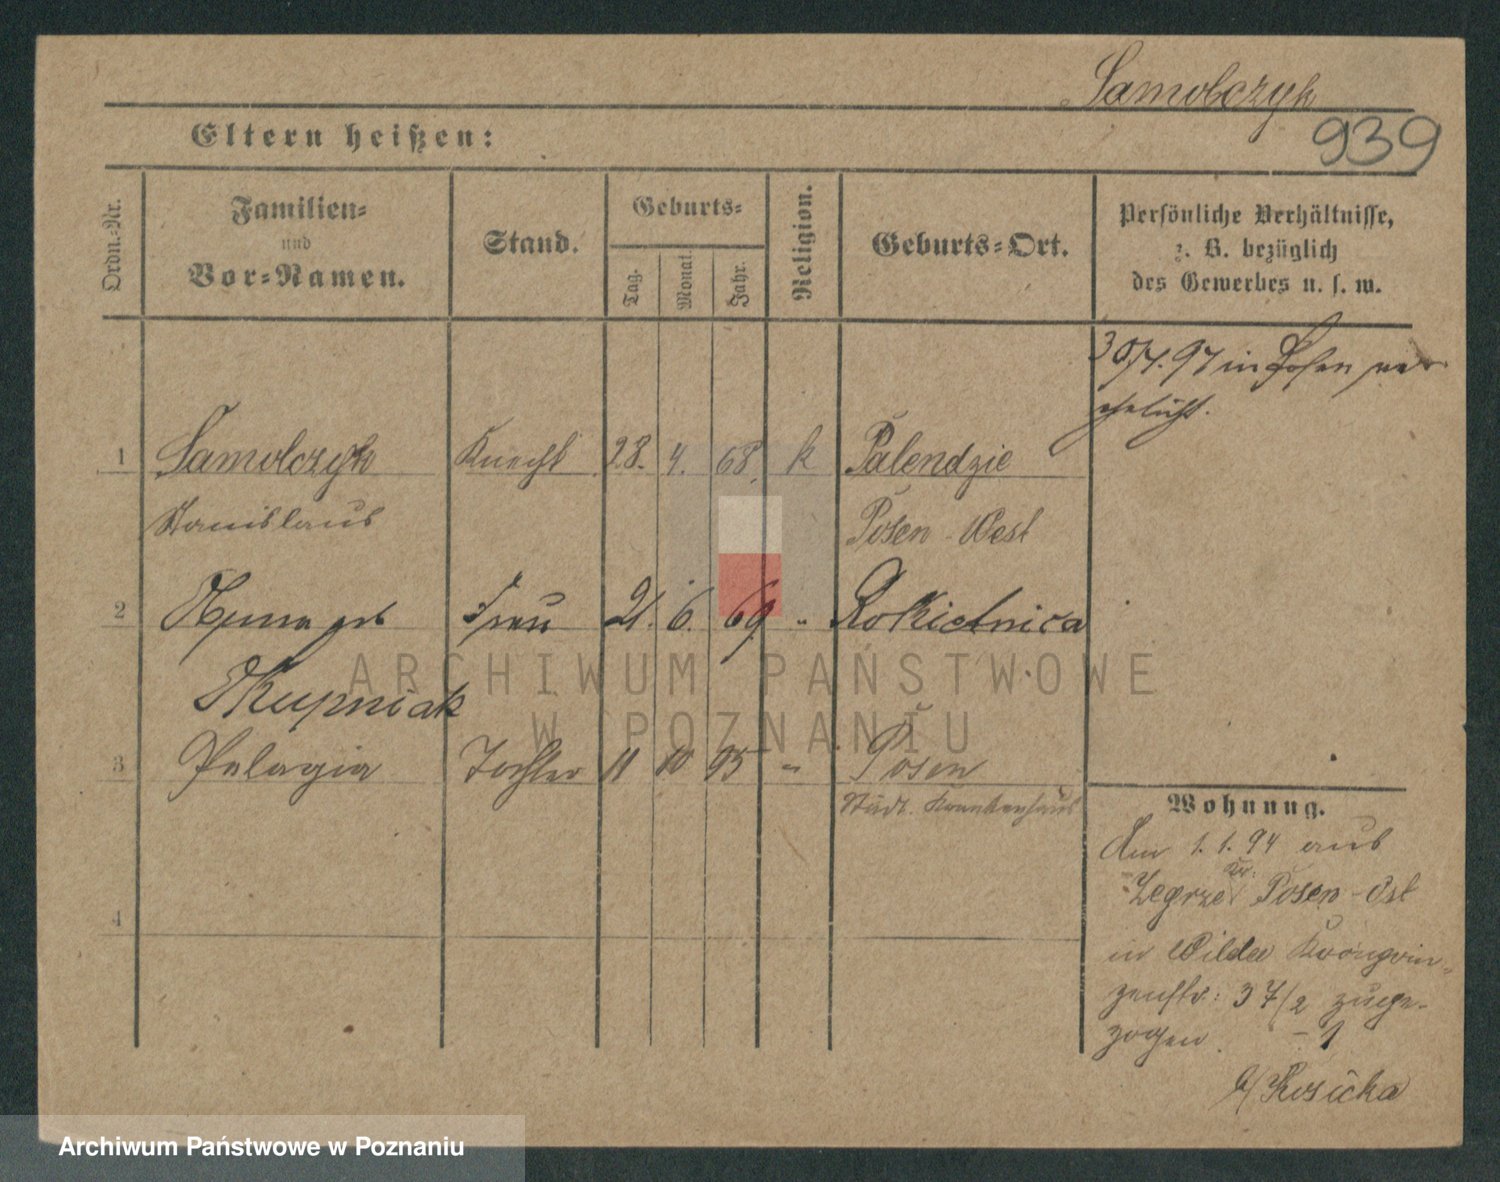 Samolczyk
939
Eltern heißen:
Ordn.-Nr.
Familien-
und
Vor-Namen.
Stand.
Geburts-
Tag.
Monat.
Jahr.
Religion.
Geburts-Ort.
Persönliche Verhältnisse,
z. B. bezüglich
des Gewerbes u. s. w.
30/4. 97 in Posen ver-
ehelicht.
1 Samolczyk Knecht 28. 4. 68. k Palendzie
Stanislaus Posen-West
2 geb Frau 21. 6. 69. " Rokietnica
Skupniak
3 Pelagia Tochter 11 10 95 " Posen
Städt. Krankenhaus
4
Wohnung.
Am 1. 1. 94 aus
Zegrze Kr. Posen-Ost
in Wilda Kronprin-
zenstr: 37/2 zuge-
zogen. - 1
b/ Kosicka
ARCHIWUM PAŃSTWOWE
W POZNANIU
Archiwum Państwowe w Poznaniu